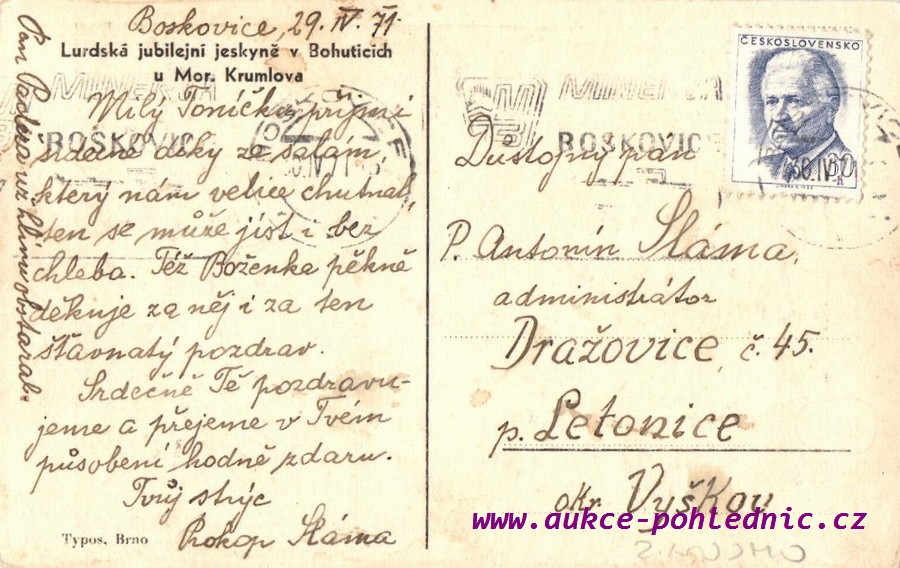 Boskovice, 29. IV. 71.
Lurdská jubilejní jeskyně v Bohuticích
u Mor. Krumlova
Milý Toníčku, přijmi
srdečné díky za salám,
který nám velice chutnal,
ten se může jíst i bez
chleba. Též Boženka pěkně
děkuje za něj i za ten
šťavnatý pozdrav.
Srdečně Tě pozdravu-
jeme a přejeme v Tvém
působení hodně zdaru.
Tvůj strýc
Prokop Sláma
Typos, Brno
Pan už obstaral.
MINERVA
BOSKOVICE
MINERVA
BOSKOVICE
ČESKOSLOVENSKO
30
Důstojný pán
P. Antonín Sláma,
administrátor
Dražovice, č. 45.
p. Letonice
okr. Vyškov
www.aukce-pohlednic.cz